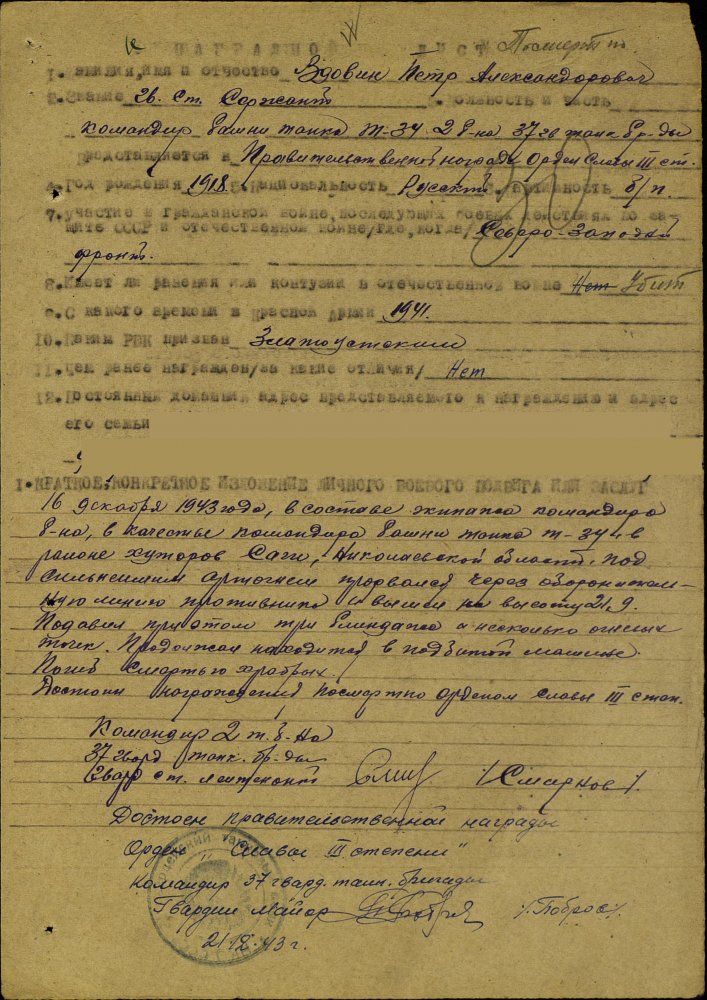 НАГРАДНОЙ ЛИСТ Посмертно
1. Фамилия, имя и отчество Вдовин Петр Александрович
2. Звание Гв. Ст. Сержант Должность и часть
командир башни танка Т-34 2 б-на 37 гв танк бр-ды
Представляется к Правительственной награде Орден Славы III ст.
4. Год рождения 1918 5. Национальность Русский партийность б/п.
7. участие в гражданской войне, последующих боевых действиях по за-
щите СССР и отечественной войне/где, когда/ Северо-Западный
фронт.
8. Имеет ли ранения или контузии в отечественной войне Нет Убит
9. С какого времени в Красной Армии 1941.
10. Каким РВК призван Златоустским
11. Чем ранее награжден/за какие отличия/ Нет
12. Постоянный домашний адрес представляемого к награждению и адрес
его семьи
1. КРАТКОЕ, КОНКРЕТНОЕ ИЗЛОЖЕНИЕ ЛИЧНОГО БОЕВОГО ПОДВИГА ИЛИ ЗАСЛУГ
16 декабря 1943 года, в составе экипажа командира
б-на, в качестве командира башни танка т-34, в
районе хуторов Саги, Николаевской области, под
сильнейшим артогнем прорвался через оборонитель-
ную линию противника и вышел на высоту 21,9.
Подавил при этом три блиндажа и несколько огневых
точек. Продолжал находится в подбитой машине.
Погиб смертью храбрых.
Достоин награждения посмертно орденом Славы III степ.
Командир 2 т. б-на
37 гвард танк. бр-ды
Гвард ст. лейтенант /Смирнов/.
Достоен правительственной награды
Орден "Славы III степени"
Командир 37 гвард. танк. бригады
Гвардии Майор
21 12 43 г.